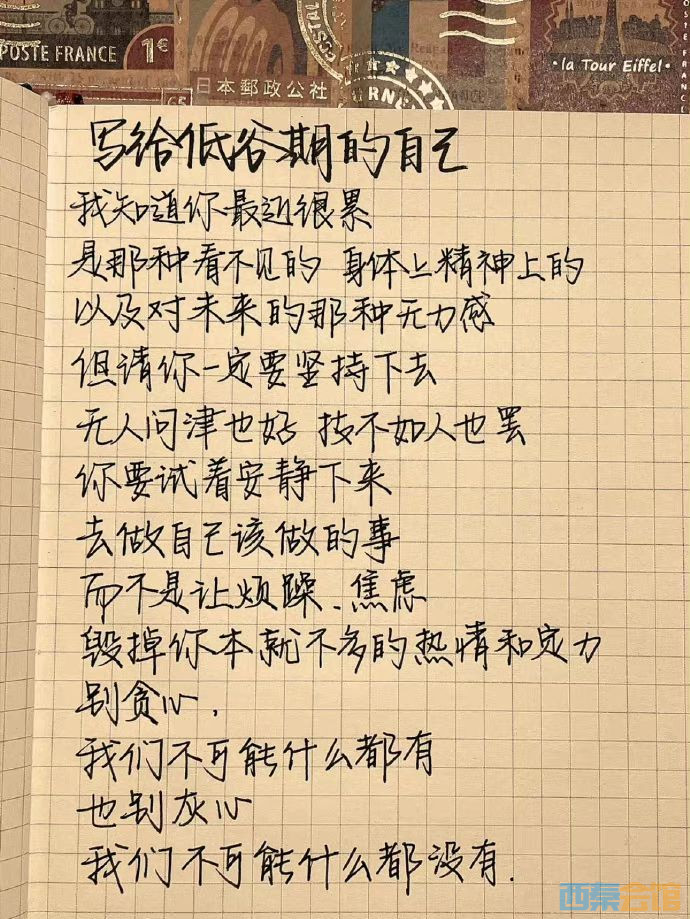 POSTE FRANCE
1€
日本郵政公社
la Tour Eiffel
写给低谷期的自己
我知道你最近很累
是那种看不见的 身体上精神上的
以及对未来的那种无力感
但请你一定要坚持下去
无人问津也好 技不如人也罢
你要试着安静下来
去做自己该做的事
而不是让烦躁、焦虑
毁掉你本就不多的热情和定力
别贪心,
我们不可能什么都有
也别灰心
我们不可能什么都没有.
西秦会馆